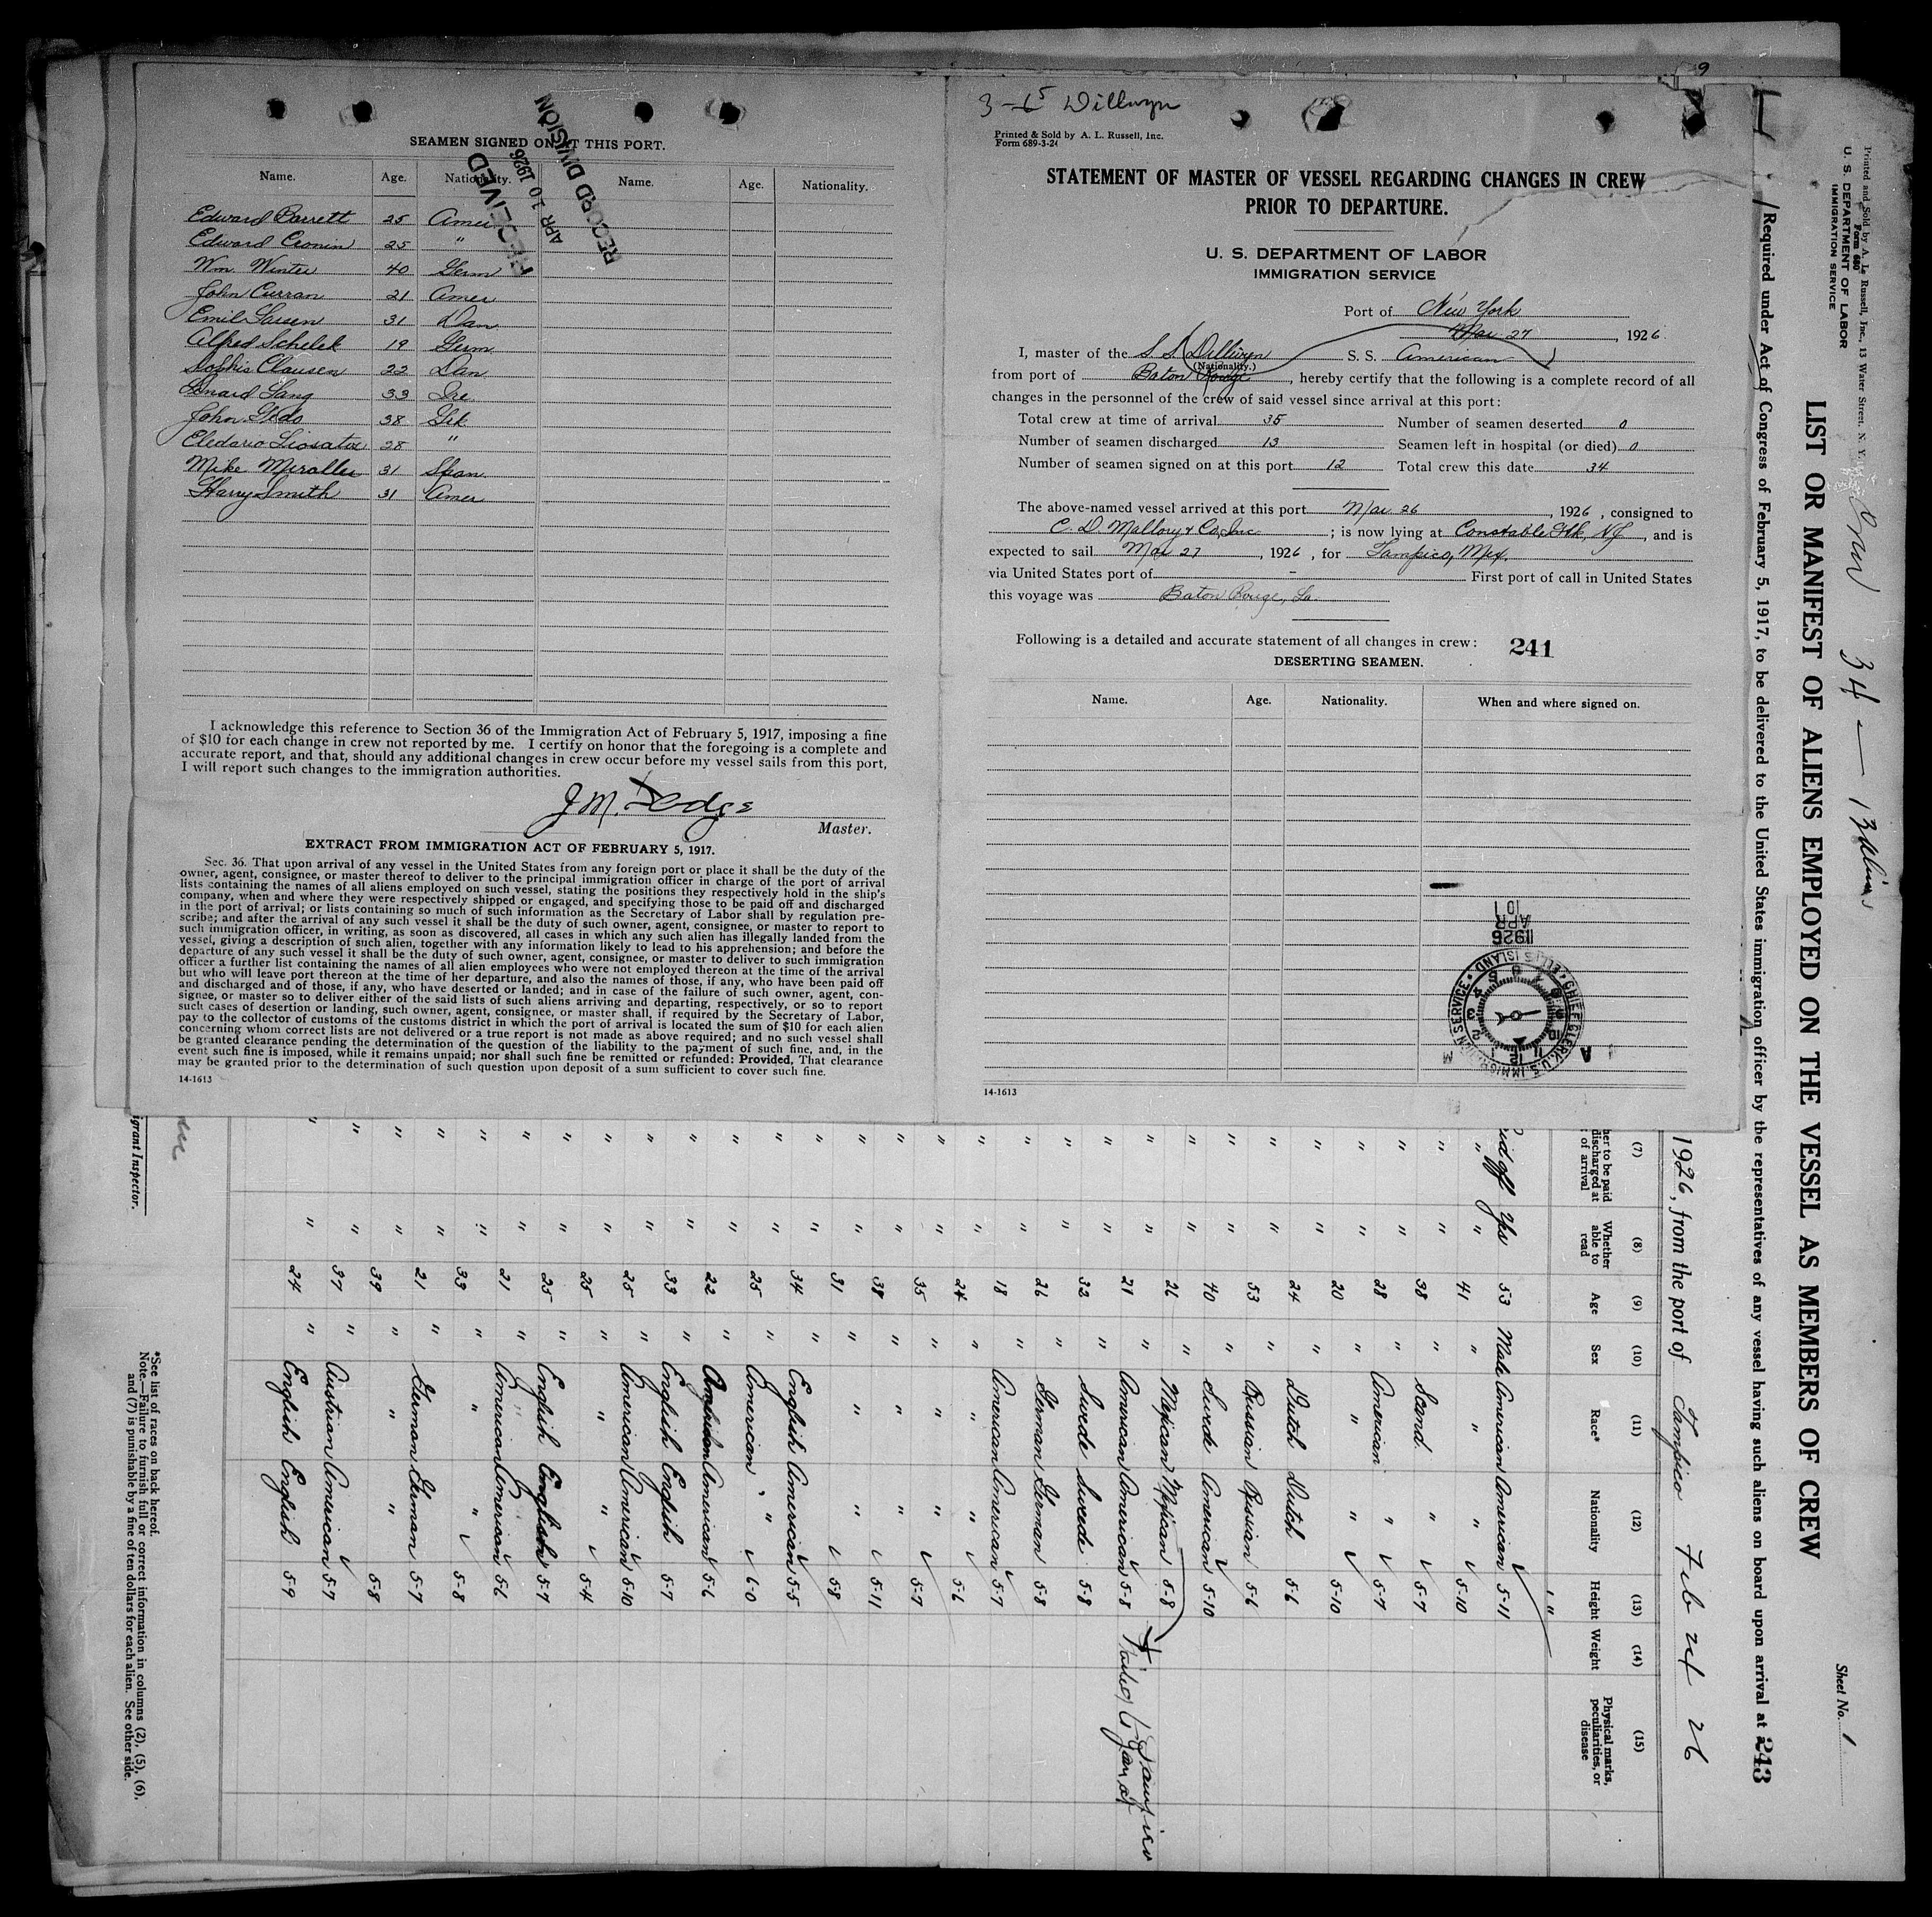 SEAMEN SIGNED ON AT THIS PORT.
Name. Age. Nationality. Name. Age. Nationality.
Edward Barrett 25 Amer
Edward Cronin 25 "
Wm. Winter 40 Germ
John Curran 21 Amer
Emil Larsen 31 Dan
Alfred Schelek 19 Germ
Clausen 22 Dan
Lang 33 Ire
John 38 Grk
28 "
Mike Miralles 31 Span
Harry Smith 31 Amer
RECEIVED
APR 10 1926
RECORD DIVISION
I acknowledge this reference to Section 36 of the Immigration Act of February 5, 1917, imposing a fine
of $10 for each change in crew not reported by me. I certify on honor that the foregoing is a complete and
accurate report, and that, should any additional changes in crew occur before my vessel sails from this port,
I will report such changes to the immigration authorities.
J M.
Master.
EXTRACT FROM IMMIGRATION ACT OF FEBRUARY 5, 1917.
Sec. 36. That upon arrival of any vessel in the United States from any foreign port or place it shall be the duty of the
owner, agent, consignee, or master thereof to deliver to the principal immigration officer in charge of the port of arrival
lists containing the names of all aliens employed on such vessel, stating the positions they respectively hold in the ship's
company, when and where they were respectively shipped or engaged, and specifying those to be paid off and discharged
in the port of arrival; or lists containing so much of such information as the Secretary of Labor shall by regulation pre-
scribe; and after the arrival of any such vessel it shall be the duty of such owner, agent, consignee, or master to report to
such immigration officer, in writing, as soon as discovered, all cases in which any such alien has illegally landed from the
vessel, giving a description of such alien, together with any information likely to lead to his apprehension; and before the
departure of any such vessel it shall be the duty of such owner, agent, consignee, or master to deliver to such immigration
officer a further list containing the names of all alien employees who were not employed thereon at the time of the arrival
but who will leave port thereon at the time of her departure, and also the names of those, if any, who have been paid off
and discharged and of those, if any, who have deserted or landed; and in case of the failure of such owner, agent, con-
signee, or master so to deliver either of the said lists of such aliens arriving and departing, respectively, or so to report
such cases of desertion or landing, such owner, agent, consignee, or master shall, if required by the Secretary of Labor,
pay to the collector of customs of the customs district in which the port of arrival is located the sum of $10 for each alien
concerning whom correct lists are not delivered or a true report is not made as above required; and no such vessel shall
be granted clearance pending the determination of the question of the liability to the payment of such fine, and, in the
event such fine is imposed, while it remains unpaid; nor shall such fine be remitted or refunded: Provided, That clearance
may be granted prior to the determination of such question upon deposit of a sum sufficient to cover such fine.
14-1613
Dillwyn
Printed & Sold by A. L. Russell, Inc.
Form 689-3-24
STATEMENT OF MASTER OF VESSEL REGARDING CHANGES IN CREW
PRIOR TO DEPARTURE.
U. S. DEPARTMENT OF LABOR
IMMIGRATION SERVICE
Port of New York
Mar 27, 1926
I, master of the S. S. Dillwyn S. S. American
(Nationality.)
from port of Baton Rouge, hereby certify that the following is a complete record of all
changes in the personnel of the crew of said vessel since arrival at this port:
Total crew at time of arrival 35 Number of seamen deserted 0
Number of seamen discharged 13 Seamen left in hospital (or died) 0
Number of seamen signed on at this port 12 Total crew this date 34
The above-named vessel arrived at this port Mar. 26, 1926, consigned to
C. D. Mallory & Co, Inc; is now lying at Constable Hk, NJ, and is
expected to sail Mar 27, 1926, for Tampico, Mex.
via United States port of - First port of call in United States
this voyage was Baton Rouge, La.
Following is a detailed and accurate statement of all changes in crew: 241
DESERTING SEAMEN.
Name. Age. Nationality. When and where signed on.
1926
APR
10
CHIEF CLERK, U.S. IMMIGRATION SERVICE • ELLIS ISLAND •
14-1613
Printed and Sold by A. L. Russell, Inc., 13 Water Street, N. Y.
Form 680
U. S. DEPARTMENT OF LABOR
IMMIGRATION SERVICE
34 — 13
Sheet No. 1
LIST OR MANIFEST OF ALIENS EMPLOYED ON THE VESSEL AS MEMBERS OF CREW
Required under Act of Congress of February 5, 1917, to be delivered to the United States immigration officer by the representatives of any vessel having such aliens on board upon arrival at 243
1926, from the port of Tampico Feb 24 26
(7) (8) (9) (10) (11) (12) (13) (14) (15)
her to be paid discharged at of arrival Whether able to read Age Sex Race* Nationality Height Weight Physical marks, peculiarities, or disease
id off Yes 53 Male American American 5-11
" " 41 " " " 5-10
" " 38 " Scand. " 5-7
" " 28 " American " 5-7
" " 20 " " " 5-10
" " 24 " Dutch Dutch 5-6
" " 53 " Russian Russian 5-6
" " 40 " Swede American 5-10
" " 26 " Mexican Mexican 5-8 Failed to join at Tampico
" " 21 " American American 5-8
" " 32 " Swede Swede 5-8
" " 26 " German German 5-8
" " 18 " American American 5-7
" " 24 " " " 5-6
" " 35 " " " 5-7
" " 38 " " " 5-11
" " 31 " " " 5-8
" " 34 " English American 5-5
" " 25 " American " 6-0
" " 22 " American American 5-6
" " 33 " English English 5-7
" " 25 " American American 5-10
" " 25 " " " 5-4
" " 25 " English English 5-7
" " 21 " American American 5-6
" " 33 " " " 5-8
" " 21 " German German 5-7
" " 39 " " " 5-8
" " 37 " Austrian American 5-7
" " 24 " English English 5-9
igrant Inspector.
*See list of races on back hereof.
Note.—Failure to furnish full or correct information in columns (2), (5), (6),
and (7) is punishable by a fine of ten dollars for each alien. See other side.